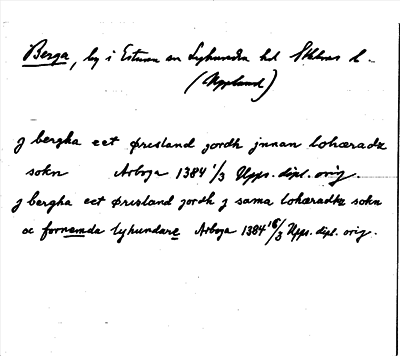 Berga, by i Estuna sn Lyhundra hd Sthlms l.
(Uppland)
j bergha eet øresland jordh jnnan lohæradz
sokn Arboga 1384 1/3 Upps. dipl. orig.
j bergha eet øresland jordh j sama lohæradz sokn
oc fornæmda lyhundare Arboga 1384 16/3 Upps. dipl. orig.